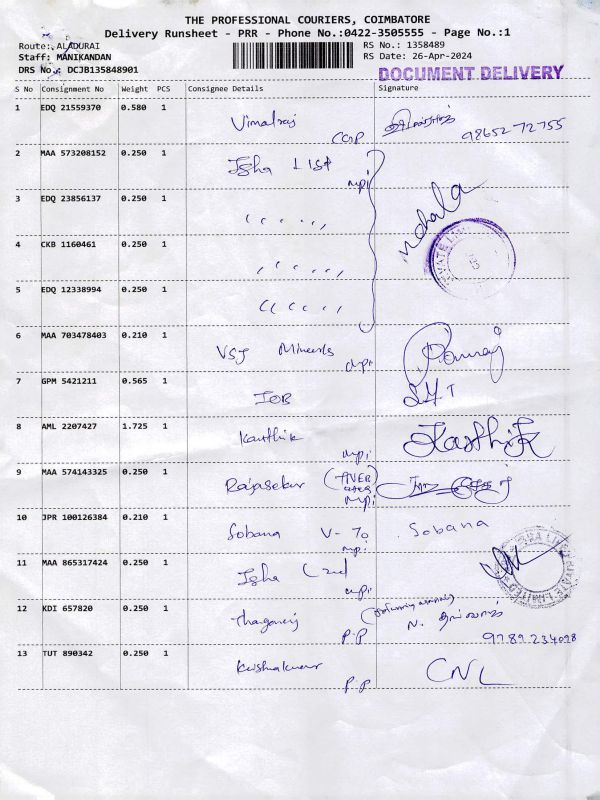 THE PROFESSIONAL COURIERS, COIMBATORE
Delivery Runsheet - PRR - Phone No.:0422-3505555 - Page No.:1
Route: ALADURAI
RS No.: 1358489
Staff: MANIKANDAN
RS Date: 26-Apr-2024
DRS No.: DCJB135848901
DOCUMENT DELIVERY
S No Consignment No Weight PCS Consignee Details Signature
1 EDQ 21559370 0.580 1 Vimalraj
98652 72755
2 MAA 573208152 0.250 1 Isha 1 list
mpi
3 EDQ 23856137 0.250 1 " "
4 CKB 1160461 0.250 1 " "
5 EDQ 12338994 0.250 1 " "
6 MAA 703478403 0.210 1 VSJ Minerals
mpi
7 GPM 5421211 0.565 1 IOB
8 AML 2207427 1.725 1 Karthik Karthik
mpi
9 MAA 574143325 0.250 1 Rajasekar
mpi
10 JPR 100126384 0.210 1 Sobana V- 70 Sobana
mpi
11 MAA 865317424 0.250 1 Isha (2nd
mpi
12 KDI 657820 0.250 1 Thagaraj
P.P 9789234098
13 TUT 890342 0.250 1 Krishnakumar CNL
P.P